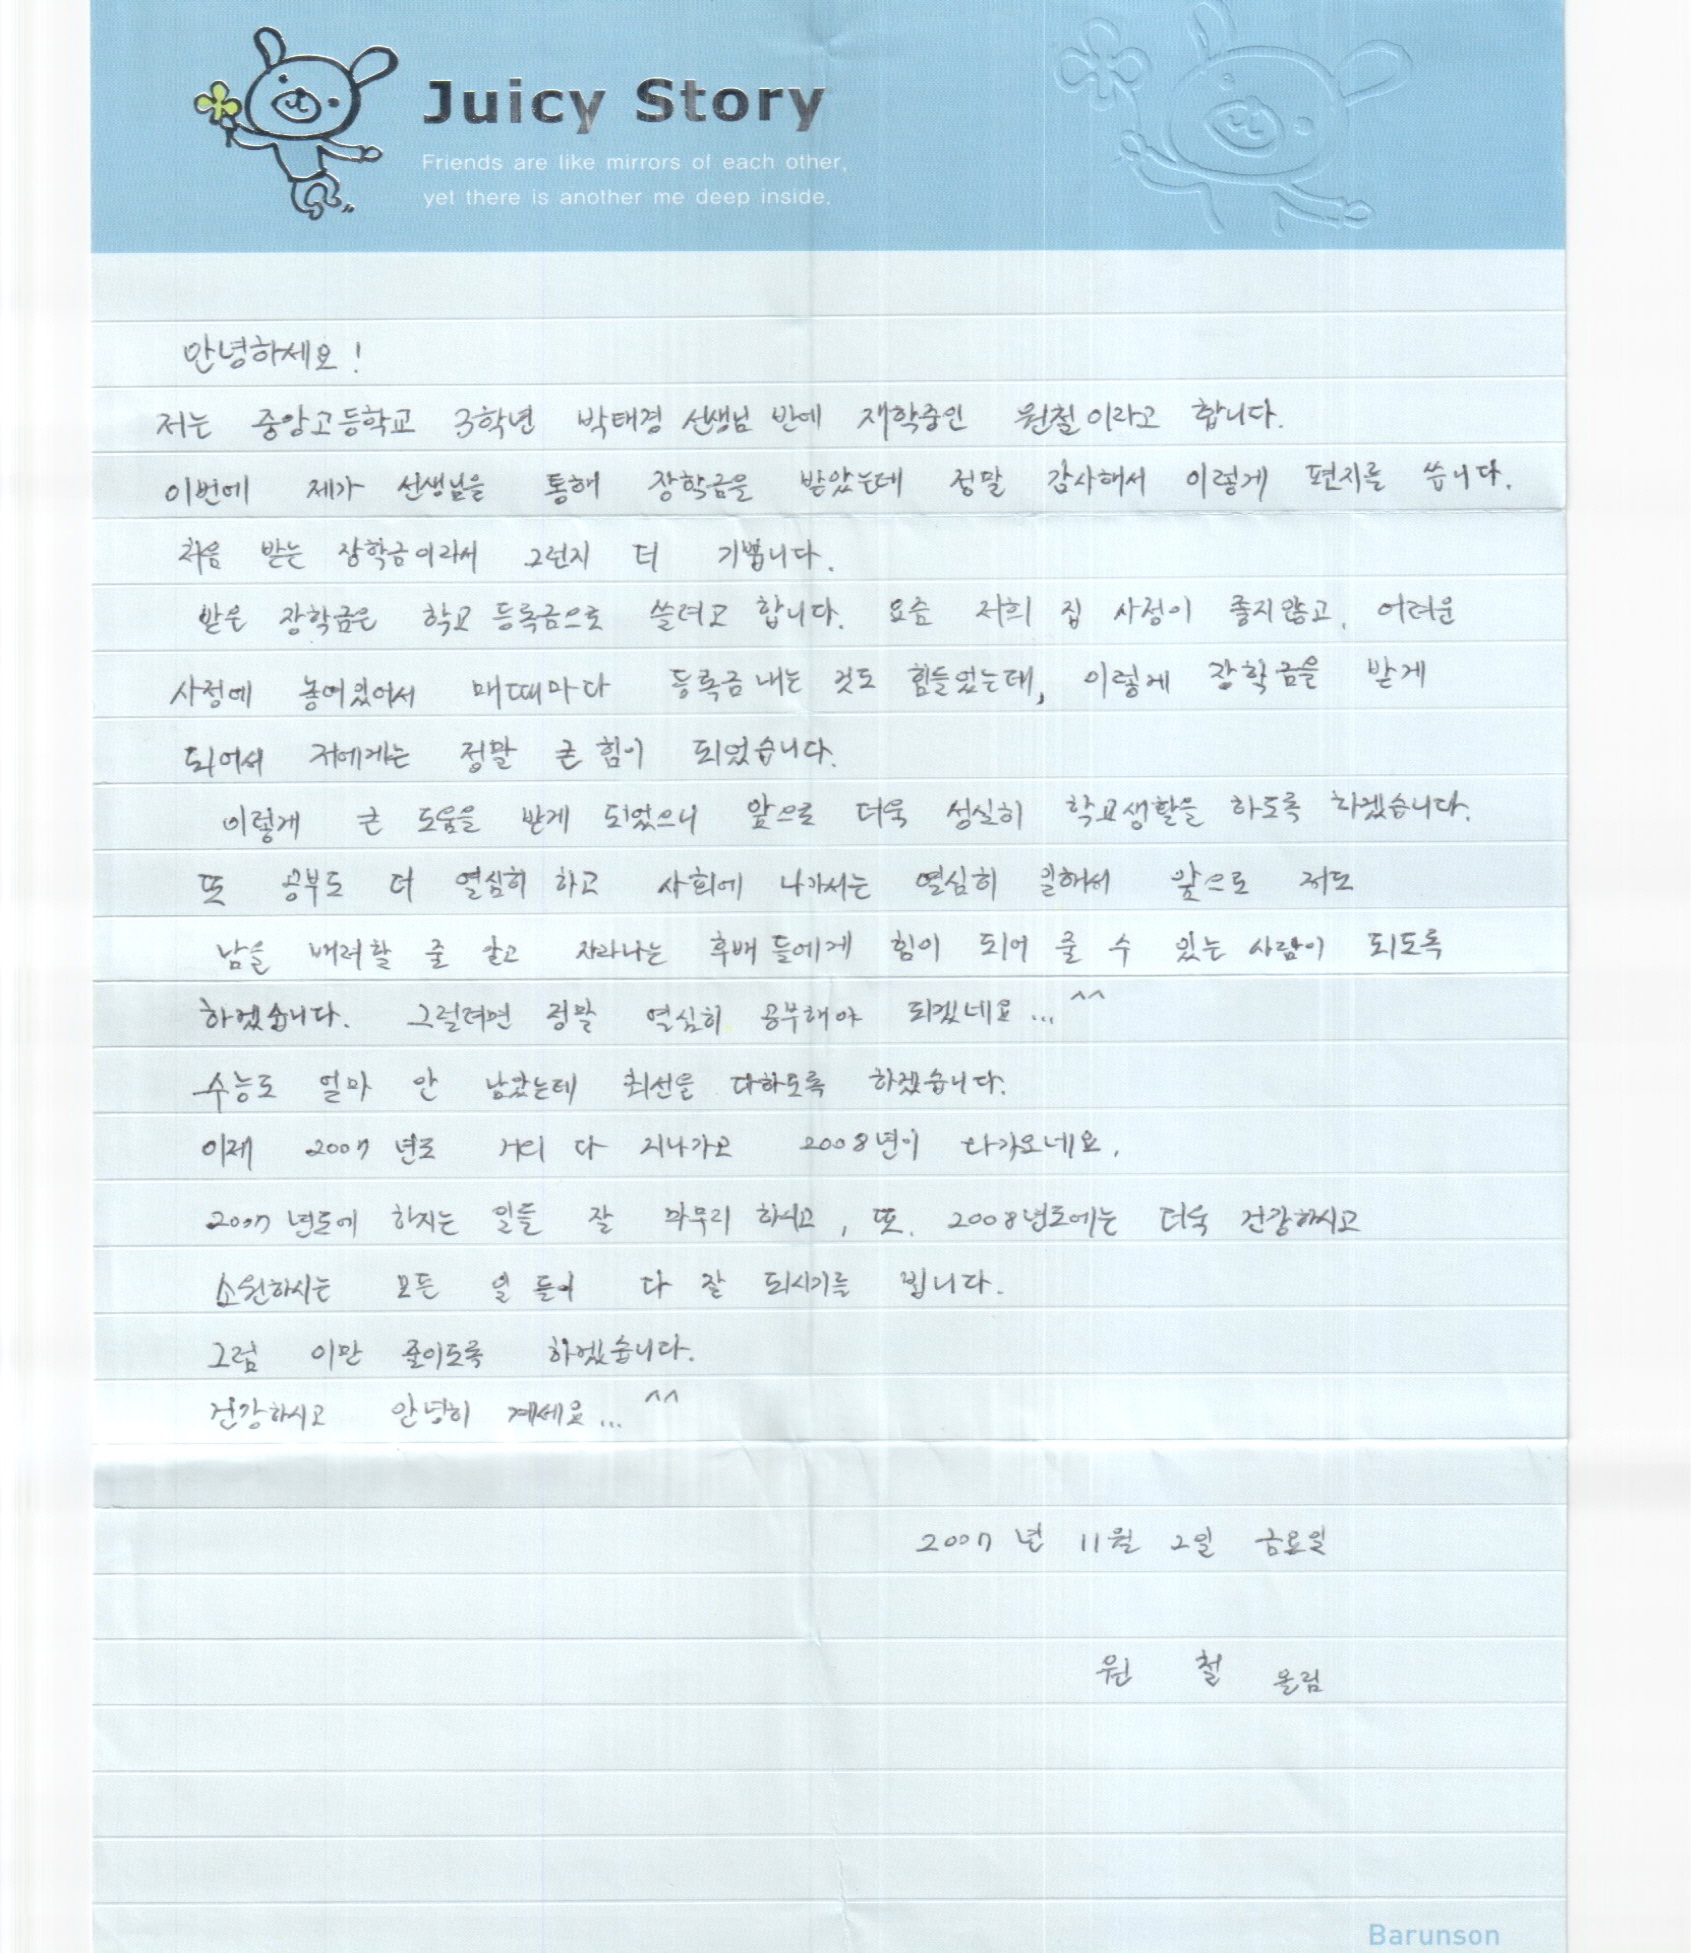 Juicy Story
Friends are like mirrors of each other,
yet there is another me deep inside.
안녕하세요!
저는 중앙고등학교 3학년 박태경 선생님 반에 재학중인 원철이라고 합니다.
이번에 제가 선생님을 통해 장학금을 받았는데 정말 감사해서 이렇게 편지를 씁니다.
처음 받는 장학금이라서 그런지 더 기쁩니다.
받은 장학금은 학교 등록금으로 쓸려고 합니다. 요즘 저희 집 사정이 좋지않고, 어려운
사정에 놓여있어서 매때마다 등록금 내는 것도 힘들었는데, 이렇게 장학금을 받게
되어서 저에게는 정말 큰 힘이 되었습니다.
이렇게 큰 도움을 받게 되었으니 앞으로 더욱 성실히 학교생활을 하도록 하겠습니다.
또 공부도 더 열심히 하고 사회에 나가서는 열심히 일해서 앞으로 저도
남을 배려할 줄 알고 자라나는 후배들에게 힘이 되어 줄 수 있는 사람이 되도록
하겠습니다. 그럴려면 정말 열심히 공부해야 되겠네요... ^^
수능도 얼마 안 남았는데 최선을 다하도록 하겠습니다.
이제 2007년도 거의 다 지나가고 2008년이 다가오네요.
2007년도에 하시는 일들 잘 마무리 하시고, 또. 2008년도에는 더욱 건강하시고
소원하시는 모든 일 들이 다 잘 되시기를 빕니다.
그럼 이만 줄이도록 하겠습니다.
건강하시고 안녕히 계세요... ^^
2007년 11월 2일 금요일
원 철 올림
Barunson